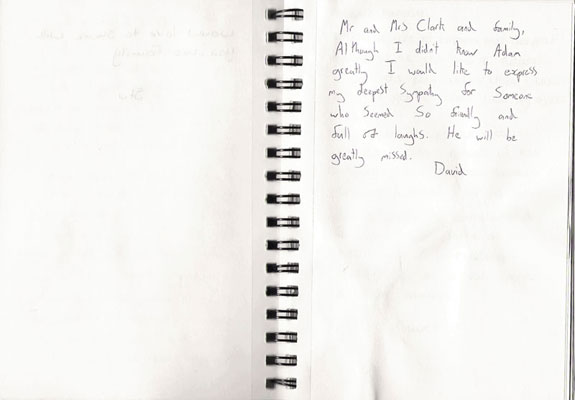 Mr and Mrs Clark and family,
Although I didn't know Adam
greatly I would like to express
my deepest sympathy for someone
who seemed so friendly and
full of laughs. He will be
greatly missed.
David